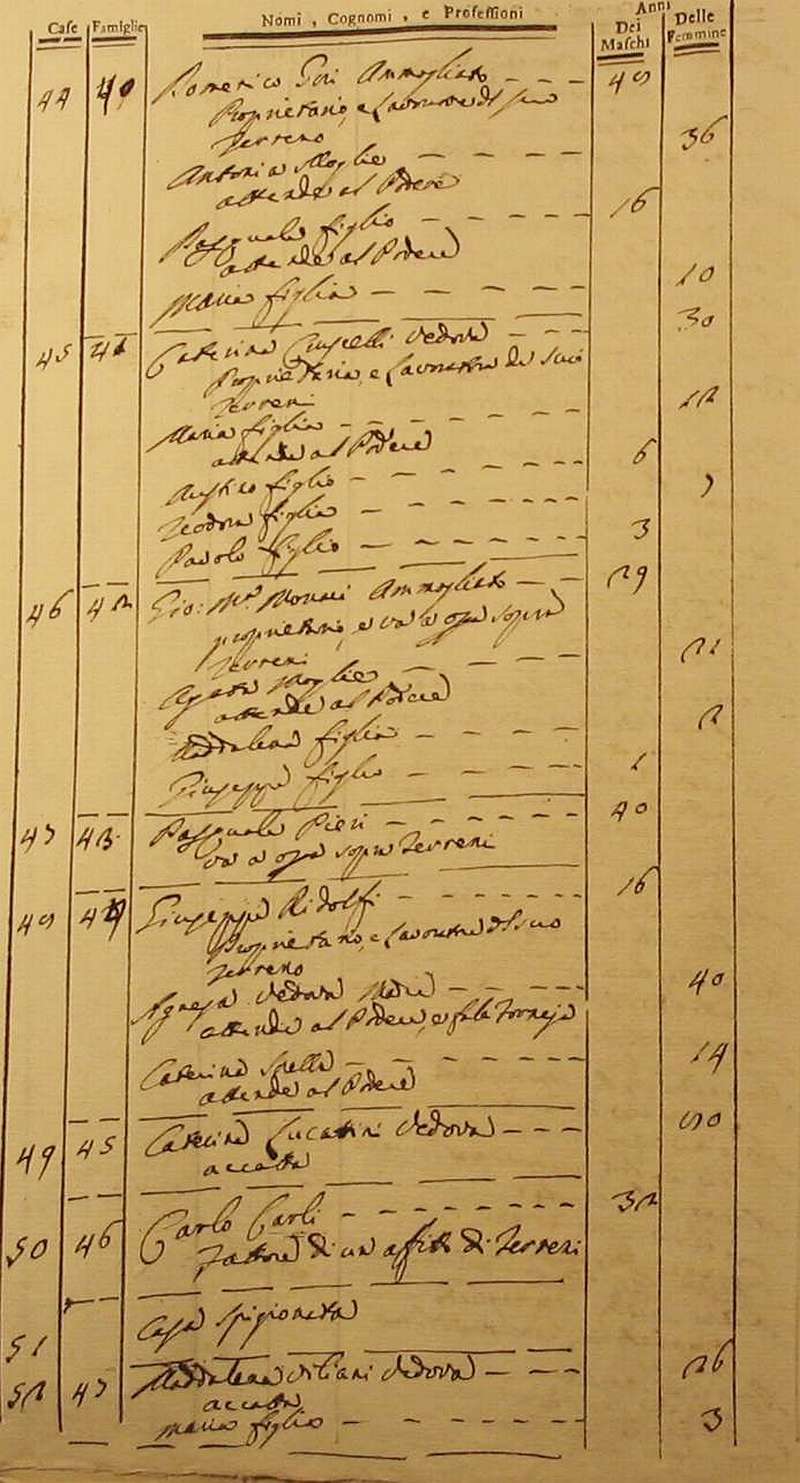 Case Famiglie Nomi, Cognomi, e Professioni Anni
Dei Maschi Delle Femmine
44 40 Gori Ammogliato 49
Proprietario, e lavoratore di suo
Terreno
Antonia Moglie 36
attende al Podere
Pasquale figlio 16
attende al Podere
Maria figlia 10
45 41 Caterina vedova 30
Proprietaria, e lavoratrice de suoi
Terreni
Maria figlia 12
attende al Podere
figlio 6
Teodora figlia 7
Paolo figlio 3
46 42 Gio: Mª Monaci Ammogliato 29
proprietario, e va a opra sopra
Terreni
Agata Moglie 21
attende al Podere
Maddalena figlia 2
Giuseppe figlio 1
47 43 Pasquale Pieri 40
va a opra sopra Terreni
48 44 Giuseppe Ridolfi 16
Proprietario, e lavoratore di suo
Terreno
Agnesa vedova Madre 40
attende al Podere, e
Caterina sorella 14
attende al Podere
49 45 Caterina Lucattini vedova 50
accatta
50 46 Carlo Carli 32
Fattore di un affitto di Terreni
51 Casa spigionata
52 47 Maddalena vedova 26
accatta
figlio 3